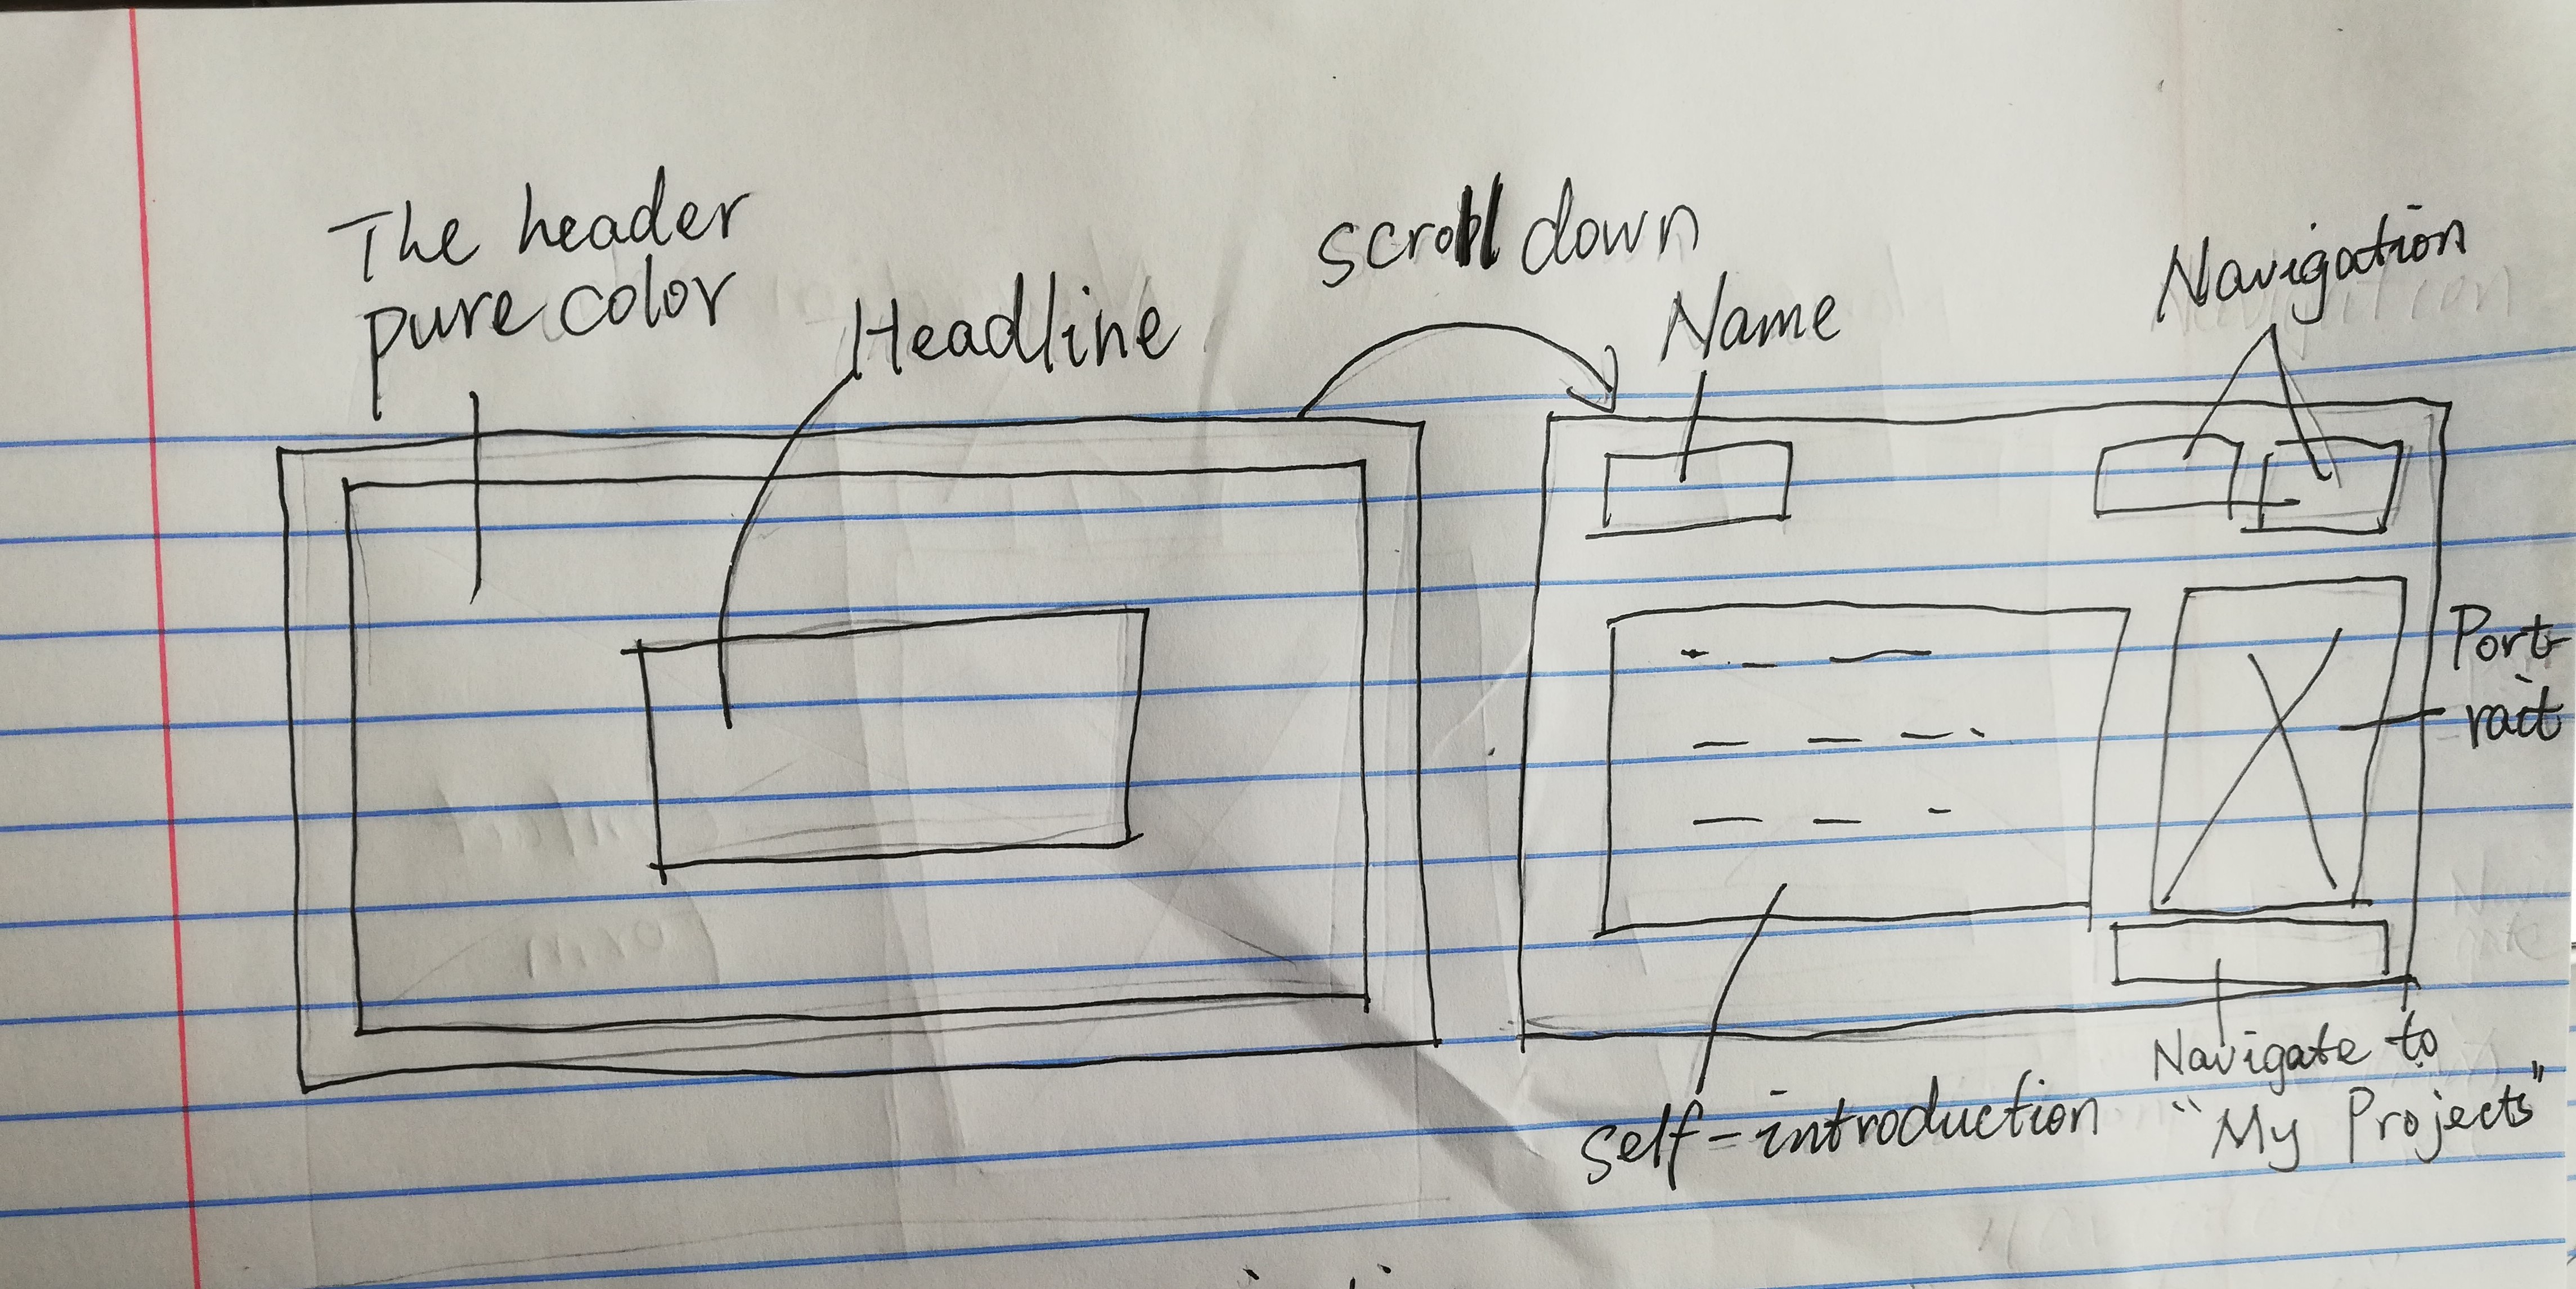 The header
pure color
Headline
scroll down
Name
Navigation
Port-
rait
self-introduction
Navigate to
"My Projects"